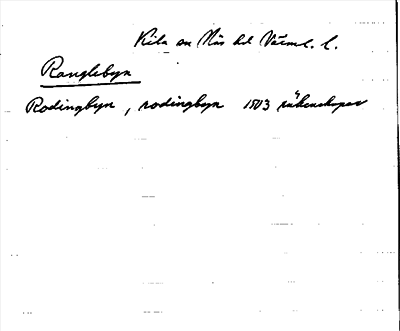 Kila sn Näs hd Värml. l.
Ranglebyn
Rodingbyn, rodingbyn 1503 räkenskaper